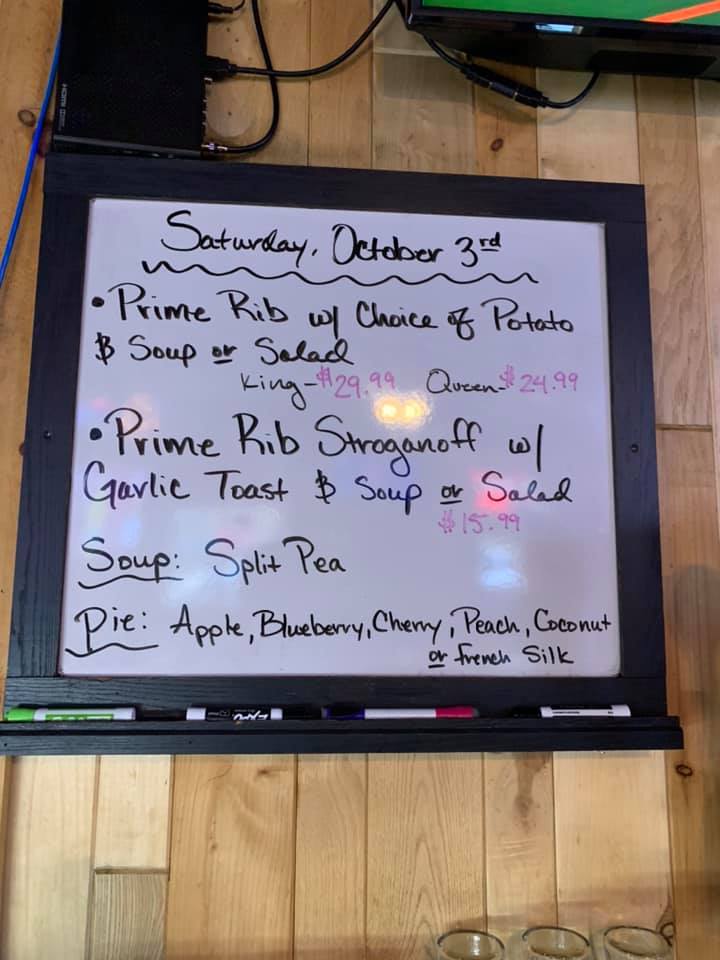 Saturday, October 3rd
• Prime Rib w/ Choice of Potato
& Soup or Salad
King - $29.99 Queen - $24.99
• Prime Rib Stroganoff w/
Garlic Toast & Soup or Salad
$15.99
Soup: Split Pea
Pie: Apple, Blueberry, Cherry, Peach, Coconut
or french Silk
HDMI
EXPO